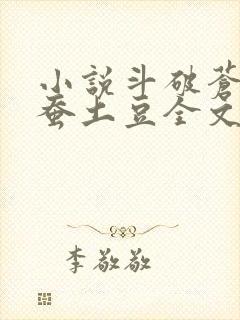 小說斗破蒼
蚕土豆全文
李敬敬